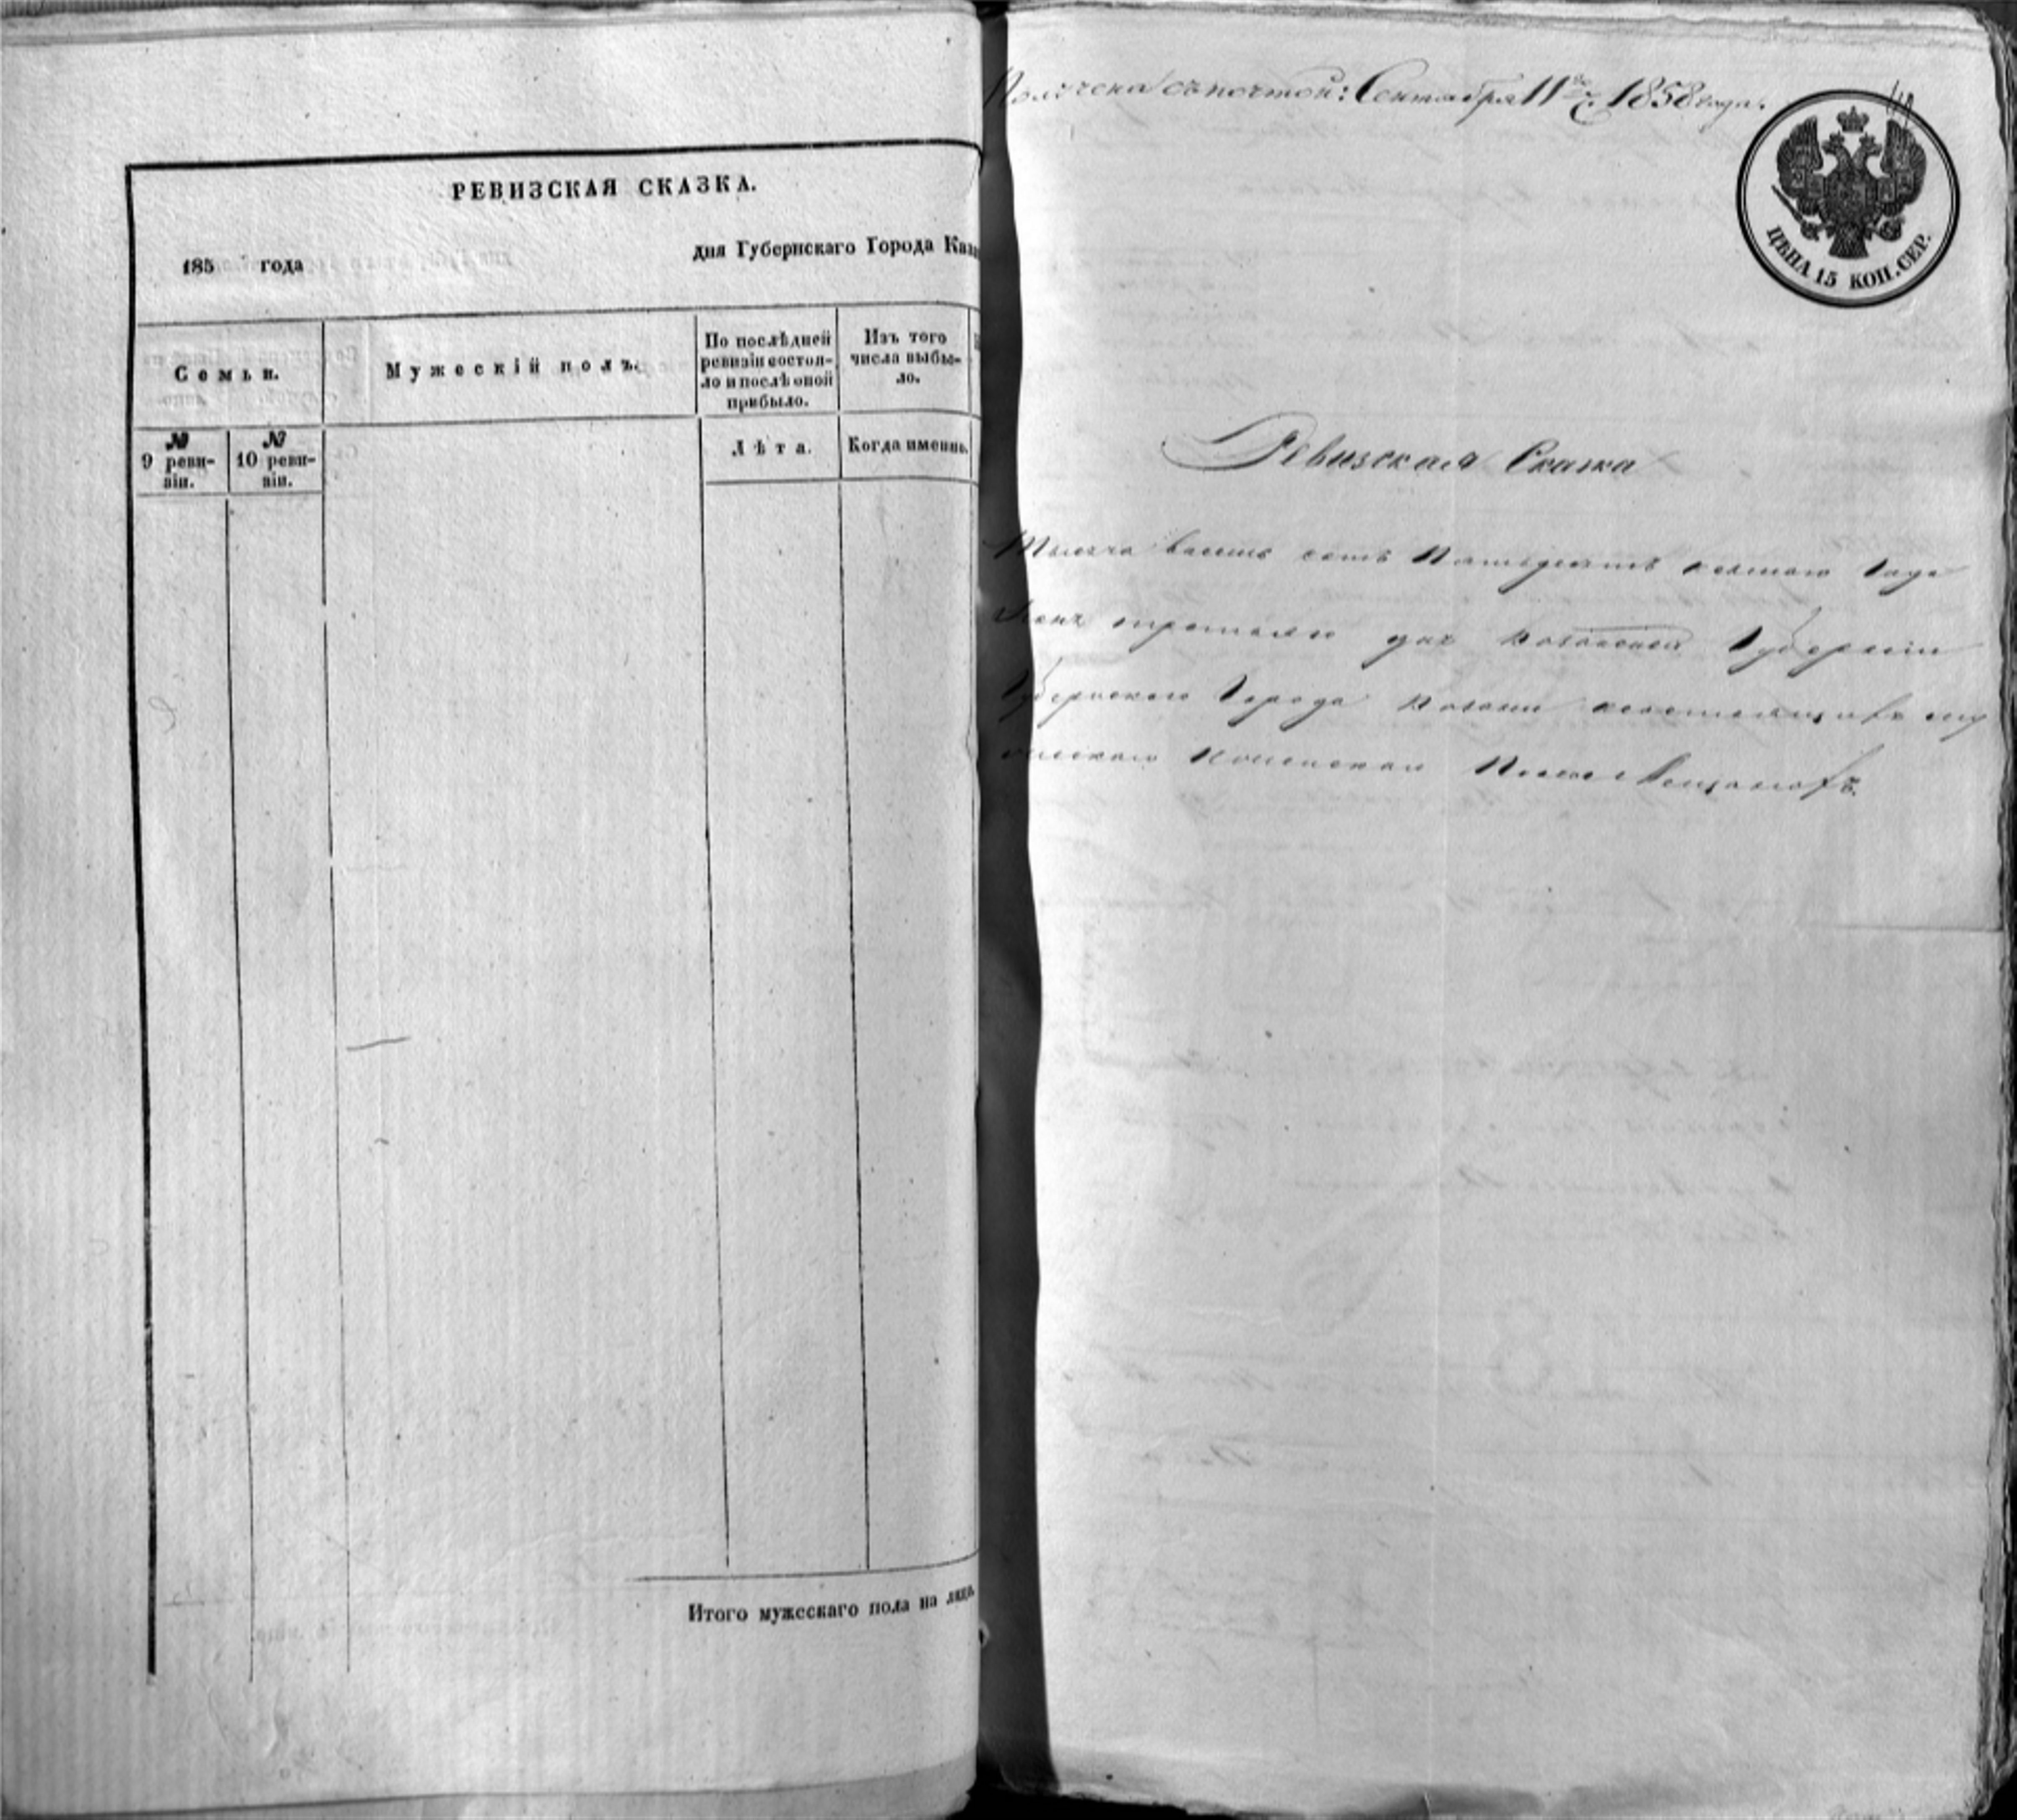 РЕВИЗСКАЯ СКАЗКА.
185 года
дня Губернскаго Города Каза
Семьи.
Мужескій полъ.
По послѣдней
ревизіи состоя-
ло и послѣ оной
прибыло.
Изъ того
числа выбы-
ло.
№
9 реви-
зіи.
№
10 реви-
зіи.
Лѣта.
Когда именно.
Итого мужескаго пола на лицо.
Получена съ почтой: Сентября 11го ч. 1858 года.
ЦѢНА 15 КОП. СЕР.
Ревизская Сказка
Тысяча восемь сотъ Пятьдесятъ Года
третьяго дня Казанской Губерніи
Губернскаго Города Казани